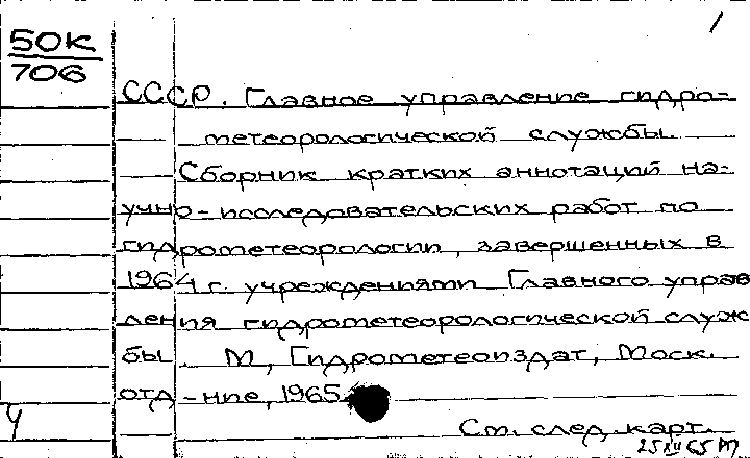 1
50К
706
СССР. Главное управление гидро-
метеорологической службы.
Сборник кратких аннотаций на-
учно-исследовательских работ по
гидрометеорологии, завершенных в
1964 г. учреждениями Главного управ
ления гидрометеорологической служ
бы. М, Гидрометеоиздат, Моск.
отд-ние, 1965
Ч
См. след. карт.
25 XII 65